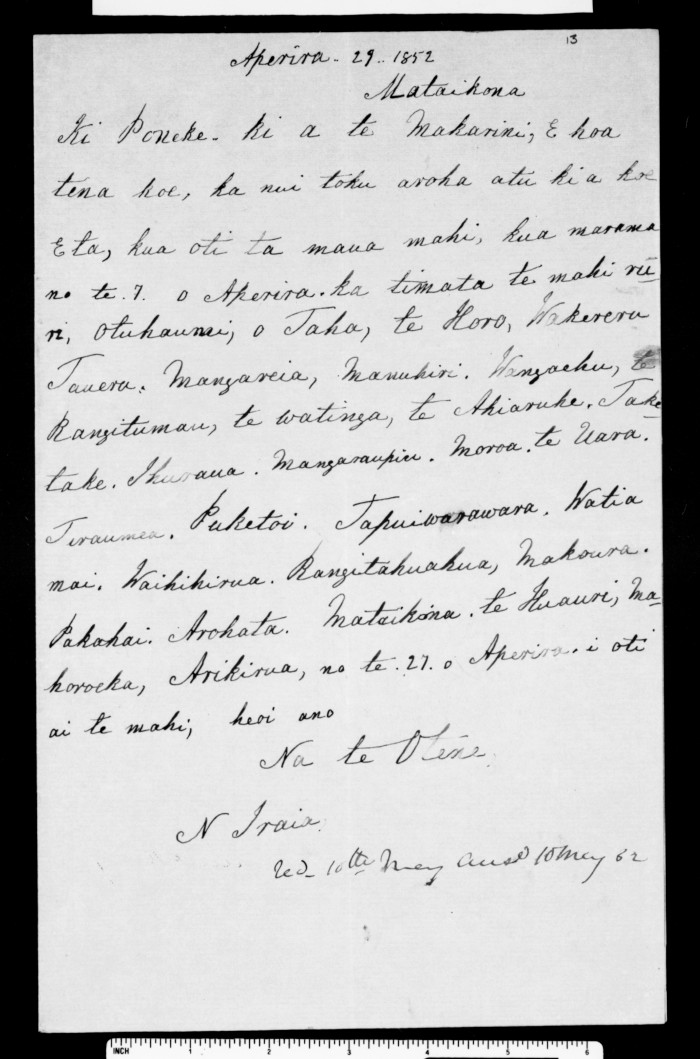 13
Aperira - 29 - 1852
Mataikona
Ki Poneke - ki a te Makarini, E hoa
tena koe, ka nui toku aroha atu ki a koe
E ta, kua oti ta maua mahi, kua marama
no te . 7 . o Aperira . ka timata te mahi rū-
ri, Otuhaumi, o Taha, te Horo, Wakereru
Taueru. Mangareia, Manuhiri. Wangaehu, te
Rangitumau, te watinga, te Ahiaruhe. Take-
take. Ihuraua. Mangaraupiu. Moroa. te Uara.
Tiraumea. Puketoi. Tapuiwarawara. Watia
mai. Waihikirua. Rangitahuahua, Makoura.
Pakahai. Arohata. Mataikona. te Huauri, Ma-
horoeka, Arikirua, no te . 27 . o Aperira. i oti
ai te mahi, heoi ano
Na te Otene
N Iraia
10th May 10 May 52
INCH 1 2 3 4 5 6